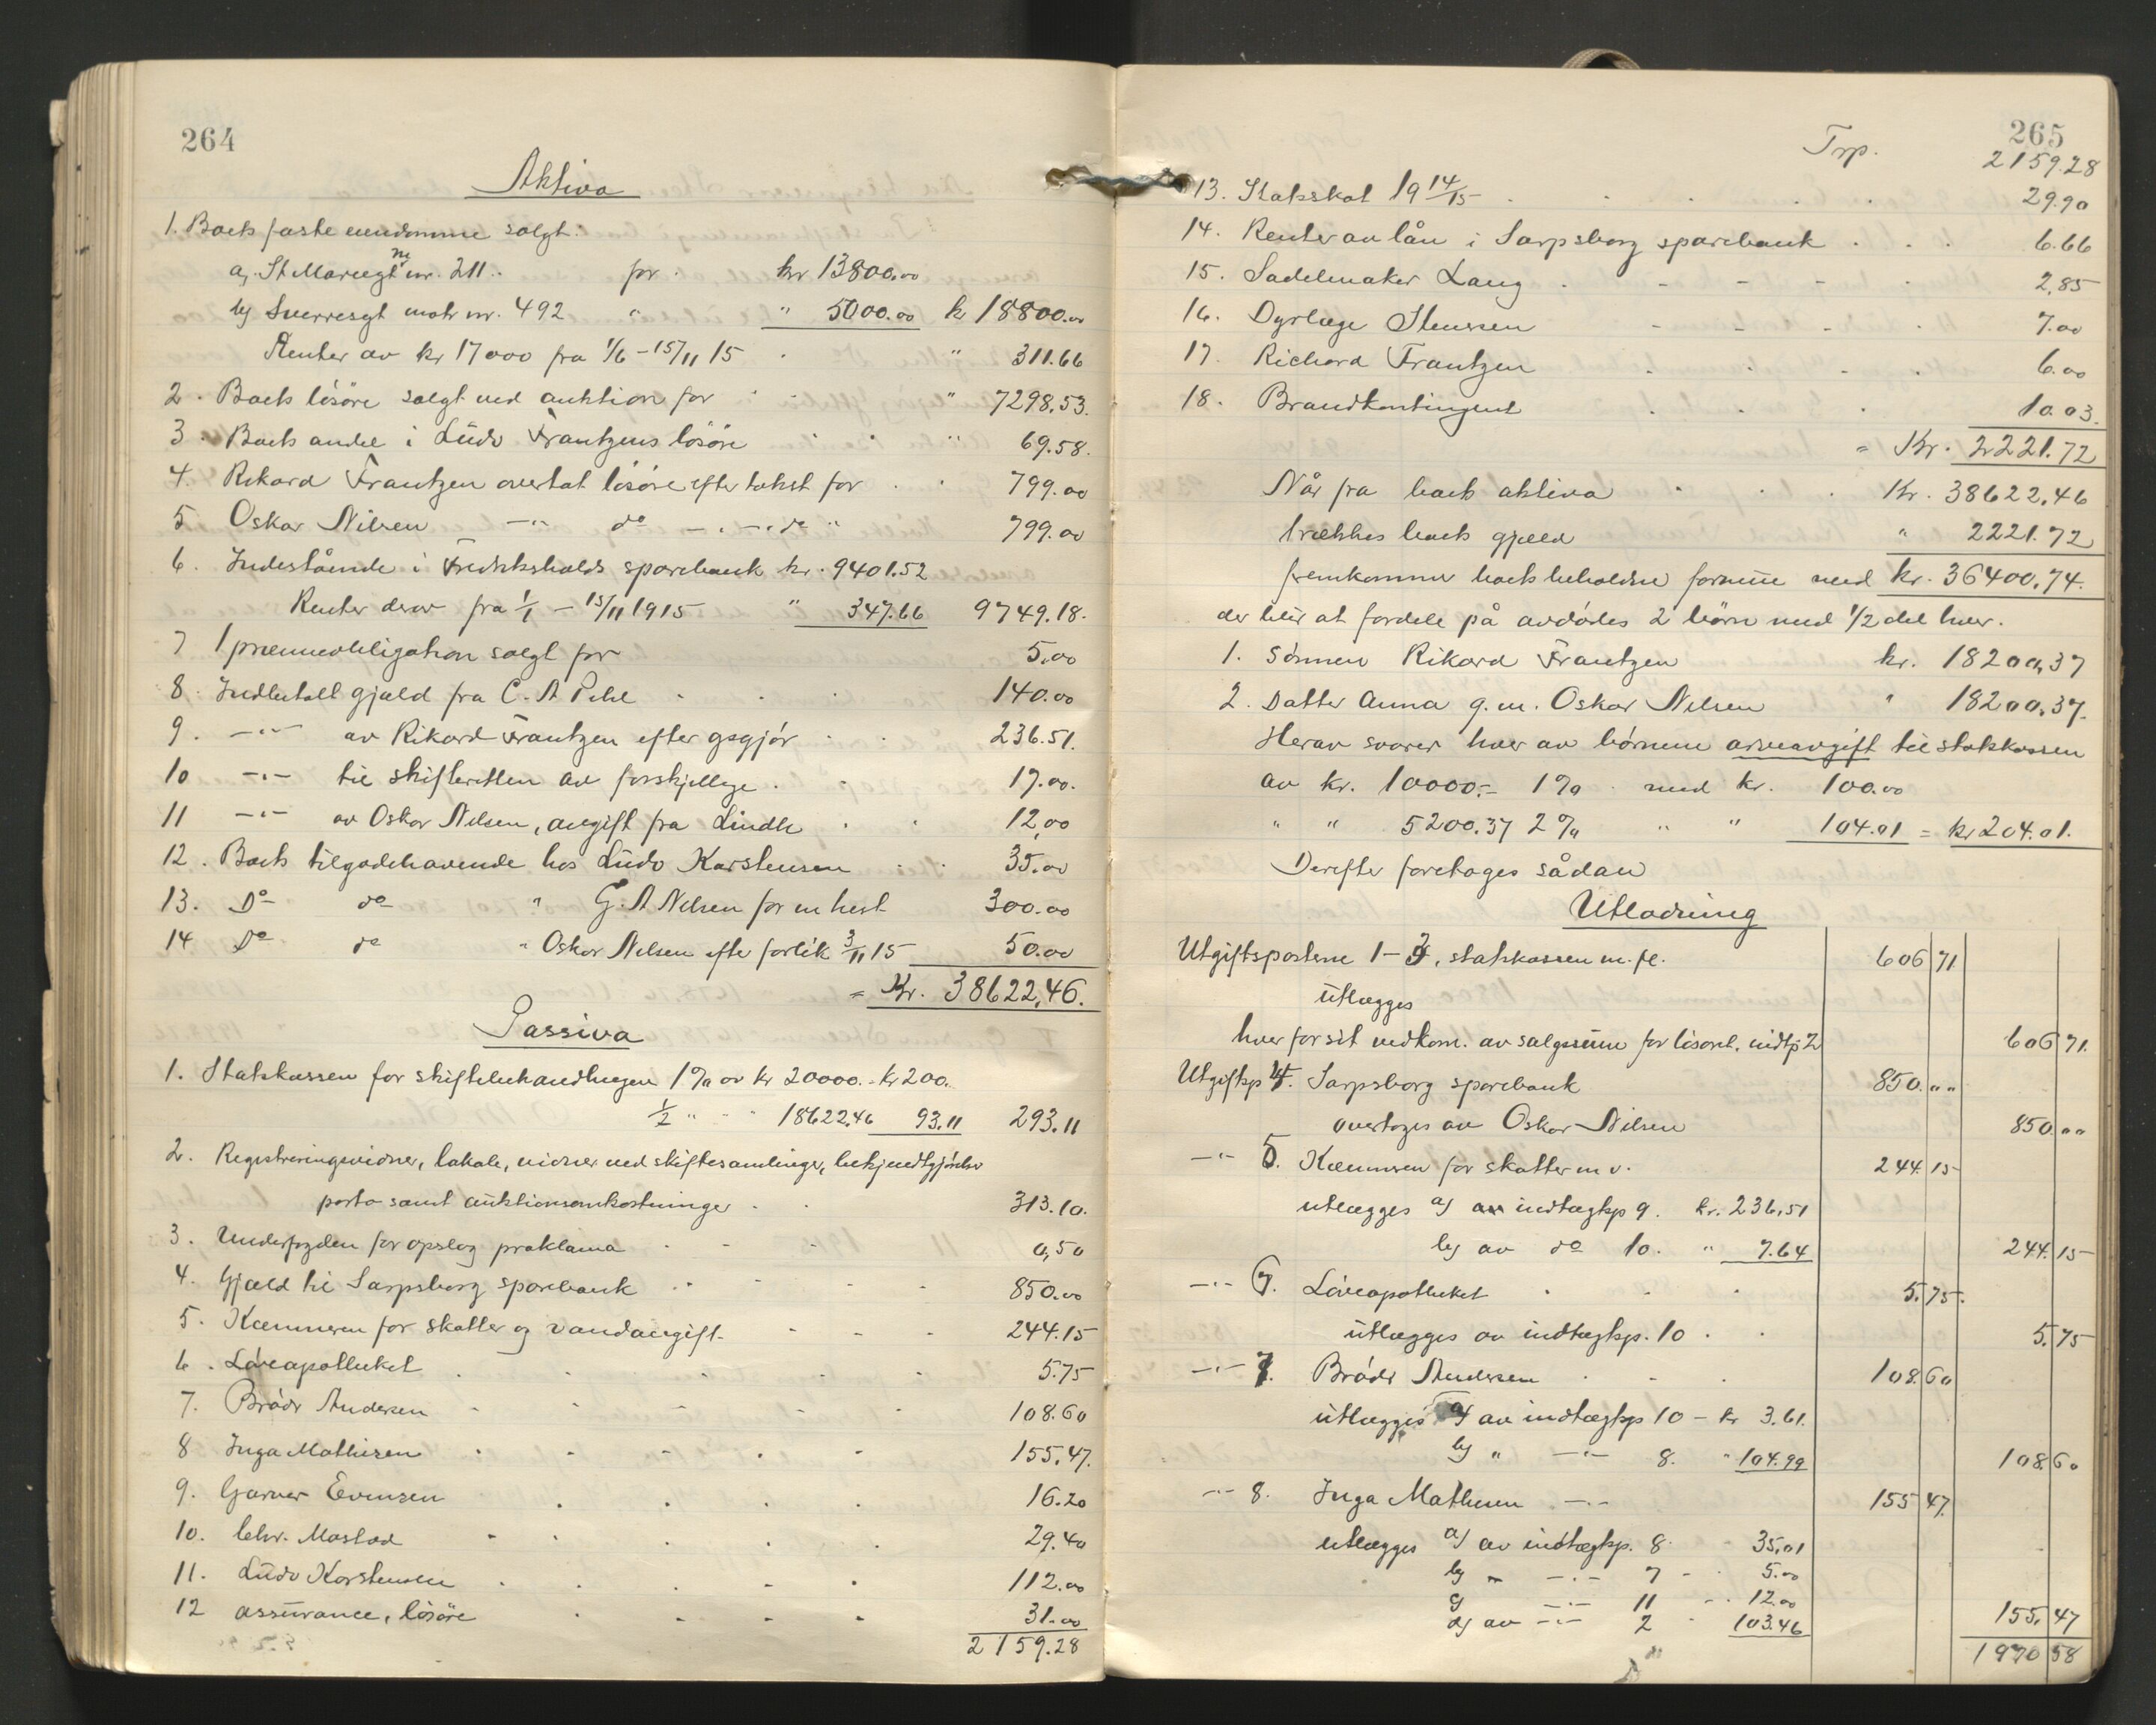 264
Aktiva
1. Boets faste eiendomme solgt:
a, St Mariegt ny nr. 211. for kr 13800.00
b, Sverresgt matr nr. 492 " " 5000.00 kr 18800.00
Renter av kr 17000 fra 1/6 - 15/11 15 " 311.66
2. Boets lösöre solgt ved auktion for " 7298.53.
3. Boets andel i Ludv Frantzens lösöre " 69.58.
4. Rikard Frantzen overtat lösöre efter takst for 799.00
5 Oskar Nilsen -"- do -"- do " 799.00
6. Indestående i Fredrikshalds sparebank kr. 9401.52
Renter derav fra 1/1 - 15/11 1915 " 347.66 9749.18.
7 1 præmieobligation solgt for 5.00
8. Indbetalt gjæld fra C. A Pihl 140.00
9. -"- av Rikard Frantzen efter opgjör 236.51.
10 -"- til skifteretten av forskjellige. 17.00.
11 -"- av Oskar Nilsen, avgift fra Lindh 12,00
12. Boets tilgodehavende hos Ludv Karstensen 35.00
13. Do do " G. A Nilsen for en hest 300.00
14 Do do " Oskar Nilsen efter forlik 3/11 15 50.00
= Kr. 38622,46.
Passiva
1. Statskassen for skiftebehandlingen 1 % av kr 20000.- kr 200.
1/2 " - " 18622.46 93.11 293.11
2. Registreringsvidner, lokale, vidner ved skiftesamlinger, bekjendtgjörelse
porto samt auktionsomkostninger 313.10.
3. Underfogden for opslag proklama 0,50
4. Gjæld til Sarpsborg sparebank 850.00
5. Kæmneren for skatter og vandavgift 244.15
6. Löveapotheket 5.75
7. Brödr Andersen 108.60
8 Inga Mathisen 155.47.
9. Garver Evensen 16.20
10. Chr. Mostad 29.40
11. Ludv Karstensen 112.00
12 assurance, lösöre 31.00
2159.28
265
Trp. 2159.28
13. Statsskat 19 14/15 29.90
14. Renter av lån i Sarpsborg sparebank 6.66
15. Sadelmaker Lang 2,85
16. Dyrlæge Stenersen 7.00
17. Richard Frantzen 6.00
18. Brandkontingent 10.03.
= Kr. 2221.72
Når fra boets aktiva Kr. 38622,46
trækkes boets gjæld " 2221.72
fremkommer boets beholdne formue med kr. 36400,74.
der blir at fordele på avdödes 2 börn med 1/2 del hver.
1. Sönnen Rikard Frantzen kr. 18200,37
2. Datter Anna g. m. Oskar Nilsen " 18200,37.
Herav svarer hver av börnene arveavgift til statskassen
av kr. 10000.- 1 % med kr. 100.00
" " 5200.37 2 % " " 104.01 = kr 204.01.
Derefter foretages sådan
Utlodning
Utgiftsposterne 1-3, statskassen m. fl. 606 71
utlægges
hver for sit vedkom. av salgssum for lösöret, indtp 2 606 71.
Utgiftsp 4. Sarpsborg sparebank 850. ""
overtages av Oskar Nilsen 850. ""
-"- 5. Kæmneren for skatter m v. 244. 15
utlægges a) av indtægtsp 9. kr. 236.51
b) av do 10. " 7.64 244. 15
-"- 6. Löveapotheket 5. 75.
utlægges av indtægtsp. 10 5. 75
-"- 7. Brödr Andersen 108. 60
utlægges a) av indtægtsp 10 - kr 3.61.
b) " -"- 8. " 104.99 108. 60
-"- 8. Inga Mathisen -"- 155 47.
utlægges a) av indtægtsp. 8. 35,01
b) " -"- 7 - 5.00
c) -"- 11 - 12.00
d) av -"- 2 103.46 155. 47
1970 58